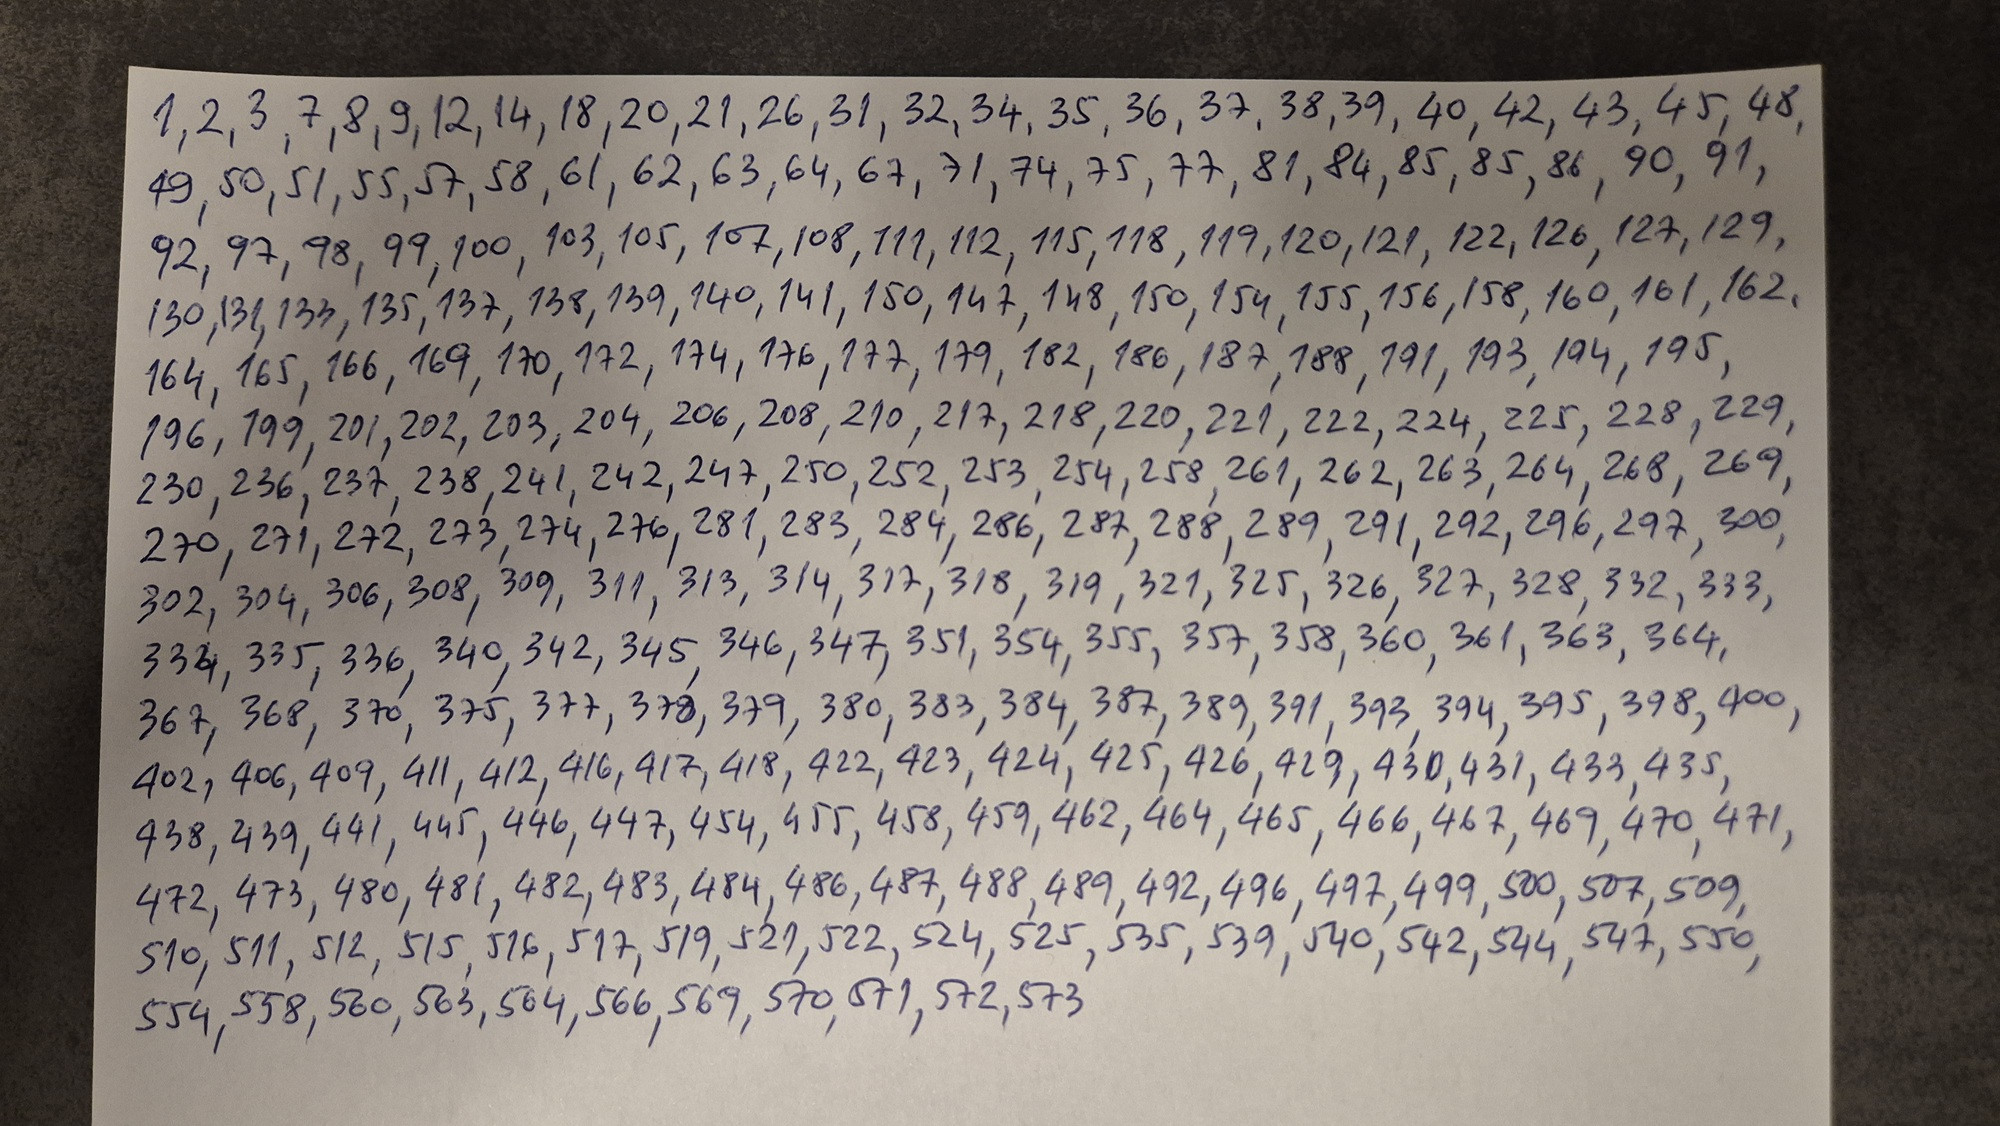 1, 2, 3, 7, 8, 9, 12, 14, 18, 20, 21, 26, 31, 32, 34, 35, 36, 37, 38, 39, 40, 42, 43, 45, 48,
49, 50, 51, 55, 57, 58, 61, 62, 63, 64, 67, 71, 74, 75, 77, 81, 84, 85, 85, 86, 90, 91,
92, 97, 98, 99, 100, 103, 105, 107, 108, 111, 112, 115, 118, 119, 120, 121, 122, 126, 127, 129,
130, 131, 133, 135, 137, 138, 139, 140, 141, 150, 147, 148, 150, 154, 155, 156, 158, 160, 161, 162,
164, 165, 166, 169, 170, 172, 174, 176, 177, 179, 182, 186, 187, 188, 191, 193, 194, 195,
196, 199, 201, 202, 203, 204, 206, 208, 210, 217, 218, 220, 221, 222, 224, 225, 228, 229,
230, 236, 237, 238, 241, 242, 247, 250, 252, 253, 254, 258, 261, 262, 263, 264, 268, 269,
270, 271, 272, 273, 274, 276, 281, 283, 284, 286, 287, 288, 289, 291, 292, 296, 297, 300,
302, 304, 306, 308, 309, 311, 313, 314, 317, 318, 319, 321, 325, 326, 327, 328, 332, 333,
334, 335, 336, 340, 342, 345, 346, 347, 351, 354, 355, 357, 358, 360, 361, 363, 364,
367, 368, 370, 375, 377, 378, 379, 380, 383, 384, 387, 389, 391, 393, 394, 395, 398, 400,
402, 406, 409, 411, 412, 416, 417, 418, 422, 423, 424, 425, 426, 429, 430, 431, 433, 435,
438, 439, 441, 445, 446, 447, 454, 455, 458, 459, 462, 464, 465, 466, 467, 469, 470, 471,
472, 473, 480, 481, 482, 483, 484, 486, 487, 488, 489, 492, 496, 497, 499, 500, 507, 509,
510, 511, 512, 515, 516, 517, 519, 521, 522, 524, 525, 535, 539, 540, 542, 544, 547, 550,
554, 558, 560, 563, 564, 566, 569, 570, 571, 572, 573